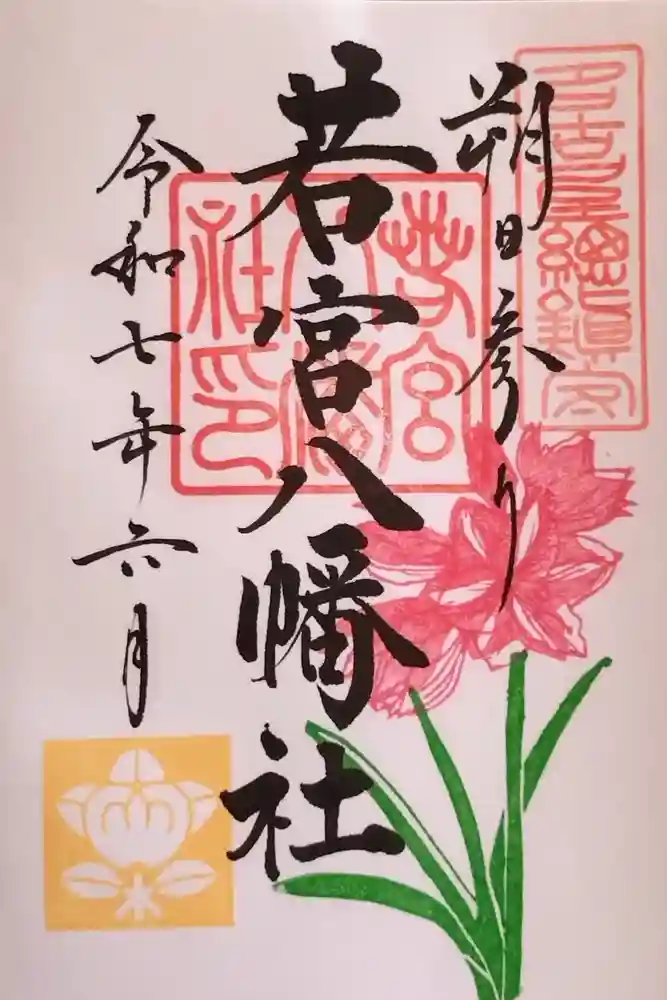 名古屋總鎮守
朔日参り
若宮八幡社
若宮八幡社印
令和七年六月